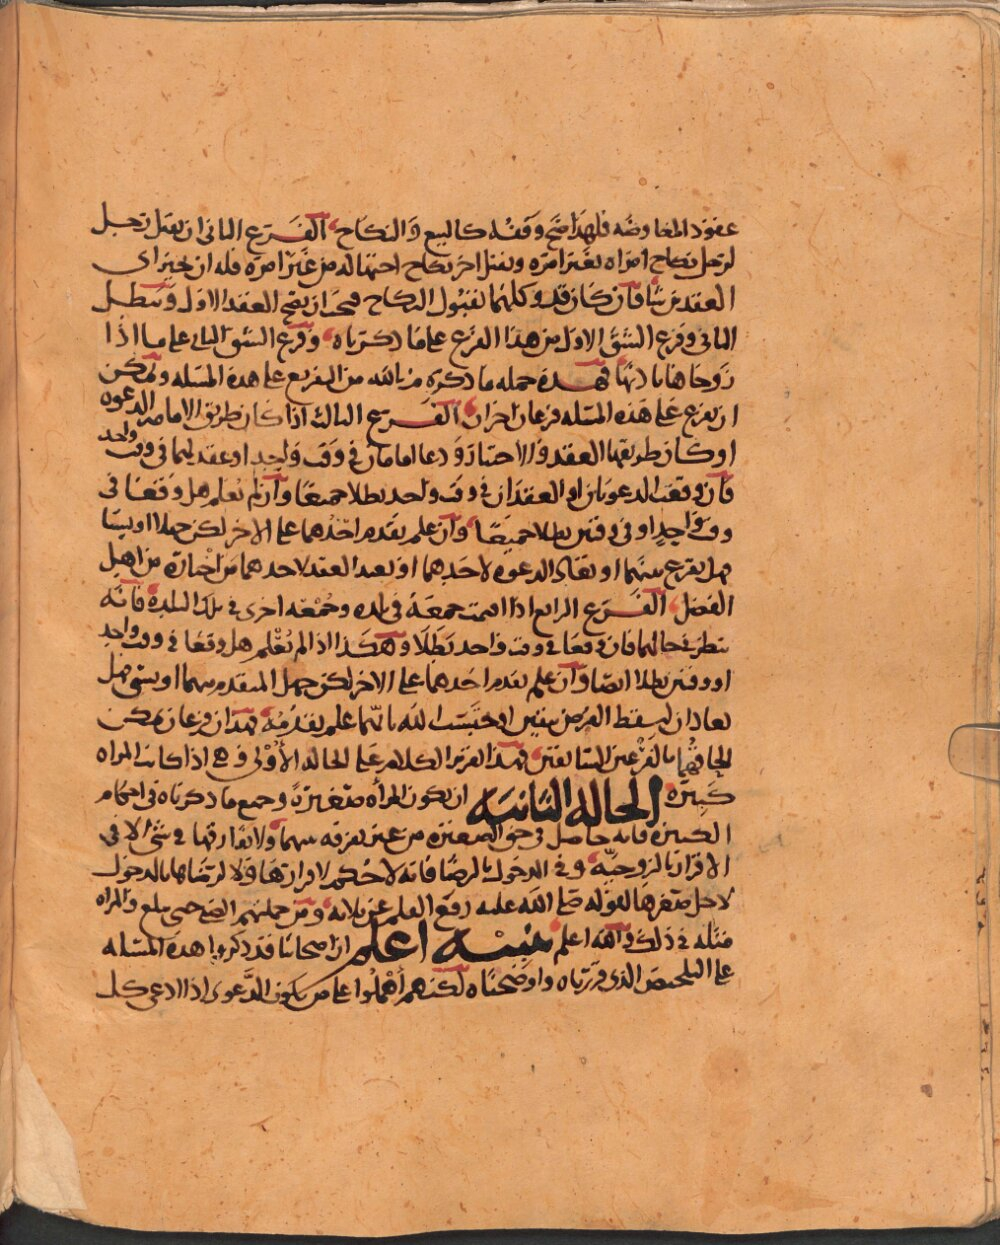 عقود المعاوضه فلهذا صح وقفه كالبيع والنكاح الفرع الثانى ان يقبل رجل
لرجل نكاح امراه بغير امره ويقبل اخر نكاح اختها له من غير امره فله ان يجيز اى
العقدين شا فان كان قد وكلهما بقبول النكاح صح ان يصح العقد الاول ويبطل
الثانى وفرع الشق الاول من هذا الفرع على ما ذكرناه وفرع الشق الثانى على ما اذا
زوجاها باذنها فهذه جمله ما ذكره من التفريع على هذه المسله ويمكن
ان يفرع على هذه المسله فرعان اخران الفرع الثالث اذا كان طريق الامامه الدعوه
او كان طريقها العقد والاختيار ودعا امامان فى وقت واحد او عقد لهما فى وقت واحد
فان وقعت الدعوتان او العقدان فى وقت واحد بطلا جميعا وان لم يعلم هل وقعا فى
وقت واحد او فى وقتين بطلا جميعا وان علم تقدم احدهما على الاخر لكن جهلا او نسيا
هل يقرع بينهما او تعاد الدعوه لاحدهما او يعيد العقد لاحدهما من اختاره من اهل
الفضل الفرع الرابع اذا اقيمت جمعة فى بلده وجمعه اخرى فى تلك البلده فانه
ينظر فى حالهما فان وقعا فى وقت واحد بطلا وهكذا اذا لم يعلم هل وقعا فى وقت واحد
او وقتين بطلا ايضا وان علم تقدم احدهما على الاخر لكن جهل المتقدم منهما او نسى فهل
تعادان ليسقط الفرض بيقين او تحتسب لله بالتى علم تقدمه فهذان فرعان يمكن
الحاقهما بالفرعين السابقين فهذا تقرير الكلام على الحاله الأولى وهى اذا كانت المراه
كبيره الحاله الثانيه ان يكون المرأه صغيرة وجميع ما ذكرناه فى احكام
الكبيره فانه حاصل فى حق الصغيره من غير تفرقه بينهما ولا تفارقها فى شى الا فى
الاقرار بالزوجيه وفى الدخول بالرضا فانه لا حكم لاقرارها ولا لرضاها بالدخول
لاجل صغرها لقوله صلى الله عليه رفع القلم عن ثلاثه ومن جملتهم الصبى حتى يبلغ والمراه
مثله فى ذلك والله اعلم تنبيه اعلم ان اصحابنا قد ذكروا هذه المسله
على التلخيص الذى قررناه واوضحناه لكنهم أهملوا على من يكون الدعوى اذا ادعى كل